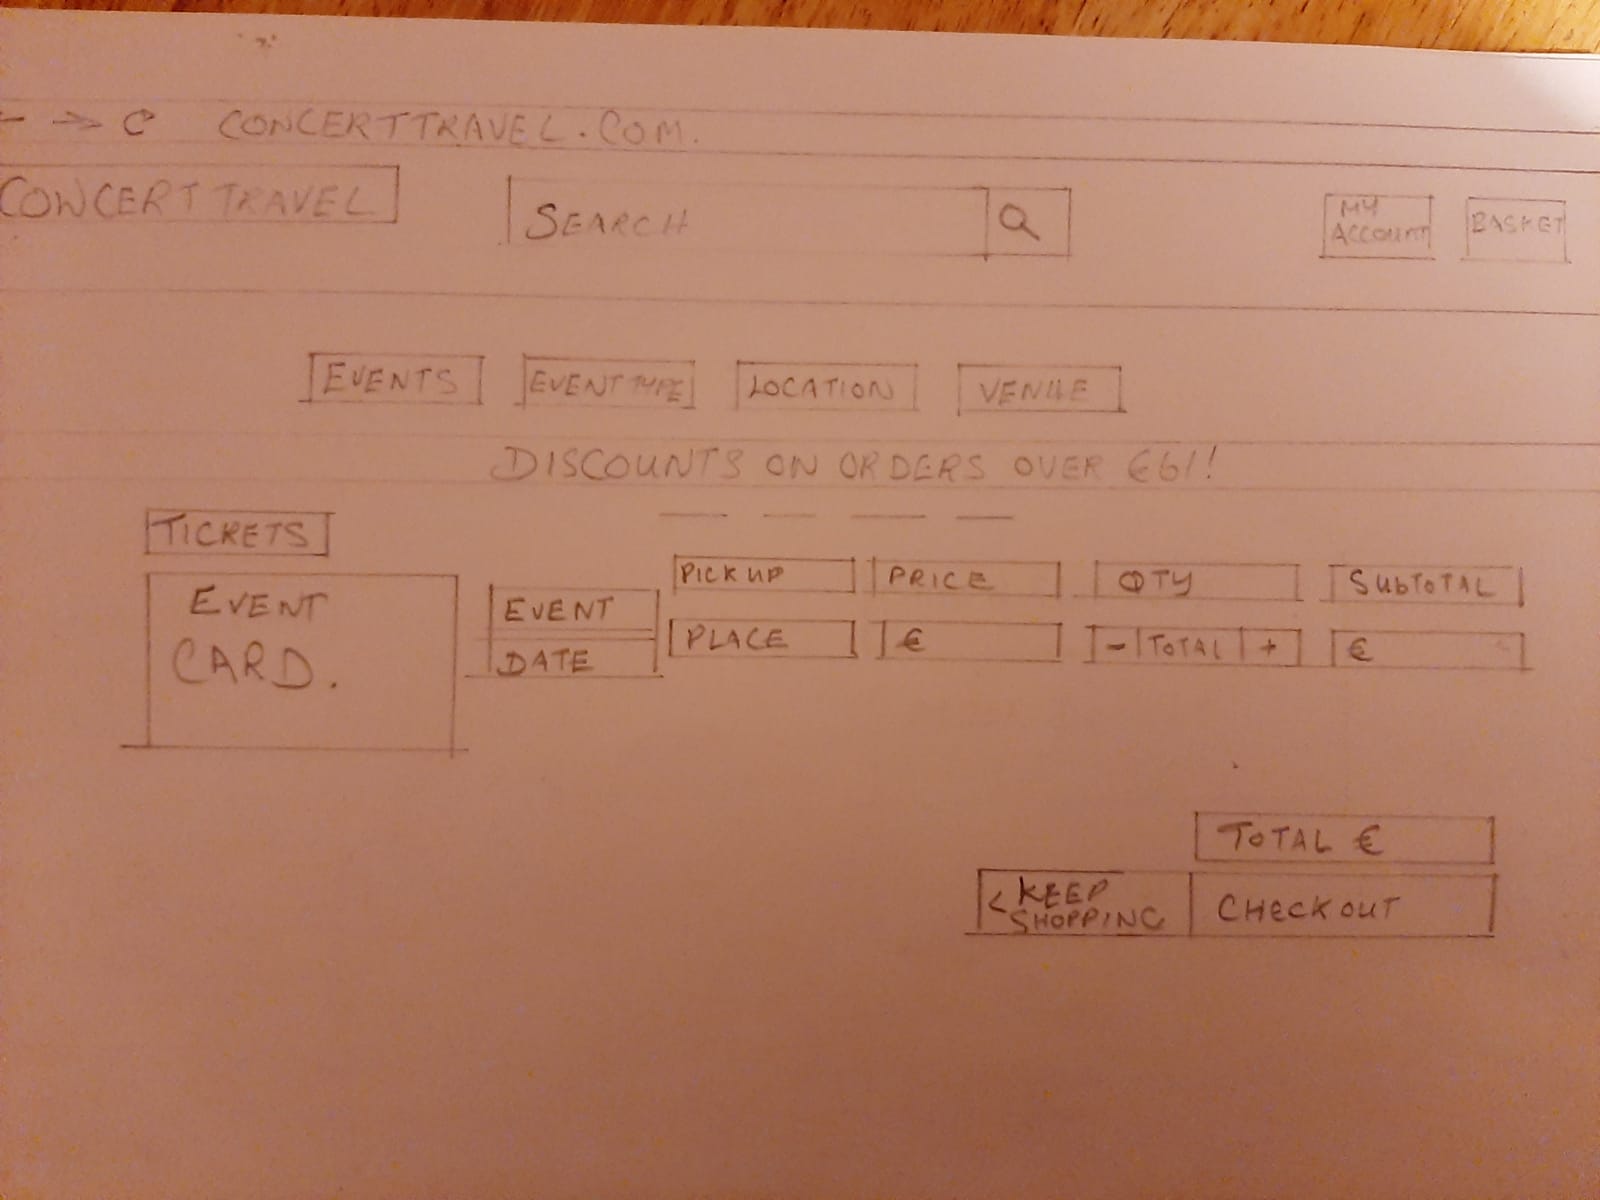 CONCERTTRAVEL.COM.
CONCERT TRAVEL
SEARCH
MY
ACCOUNT
BASKET
EVENTS
EVENT TYPE
LOCATION
VENUE
DISCOUNTS ON ORDERS OVER €61!
TICKETS
EVENT
CARD.
EVENT
DATE
PICK UP
PRICE
QTY
SUBTOTAL
PLACE
€
- TOTAL +
€
TOTAL €
< KEEP
SHOPPING
CHECKOUT